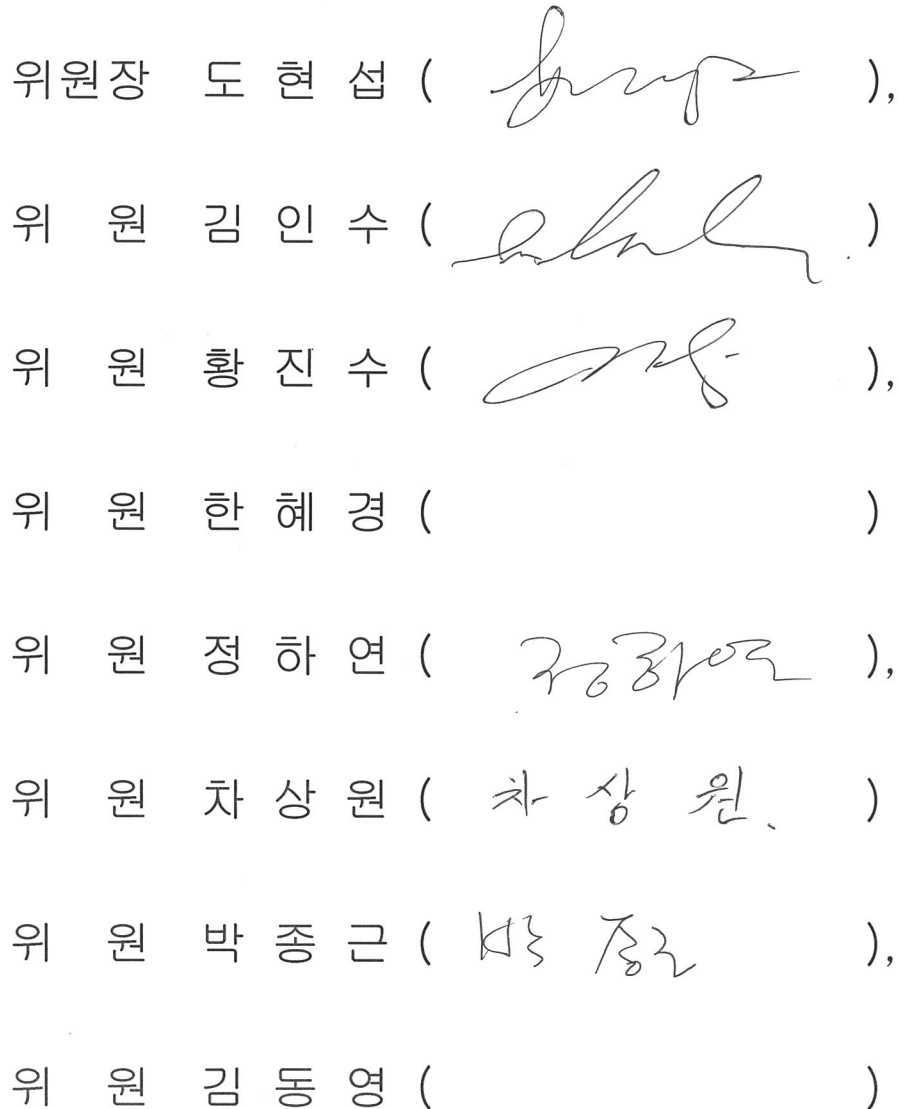 위원장 도 현 섭 ( ),
위 원 김 인 수 ( )
위 원 황 진 수 ( ),
위 원 한 혜 경 ( )
위 원 정 하 연 ( 정하연 ),
위 원 차 상 원 ( 차 상 원. )
위 원 박 종 근 ( 박 종근 ),
위 원 김 동 영 ( )